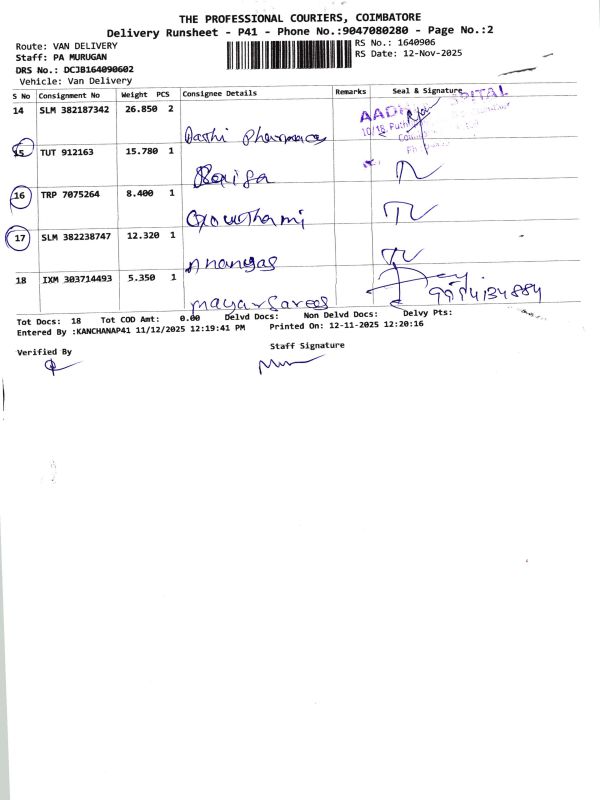 THE PROFESSIONAL COURIERS, COIMBATORE
Delivery Runsheet - P41 - Phone No.:9047080280 - Page No.:2
Route: VAN DELIVERY
RS No.: 1640906
Staff: PA MURUGAN
RS Date: 12-Nov-2025
DRS No.: DCJB164090602
Vehicle: Van Delivery
S No Consignment No Weight PCS Consignee Details Remarks Seal & Signature
14 SLM 382187342 26.850 2 Pharmacy
15 TUT 912163 15.780 1
16 TRP 7075264 8.400 1 Gowthami
17 SLM 382238747 12.320 1
18 IXM 303714493 5.350 1 9994134884
Tot Docs: 18 Tot COD Amt: 0.00 Delvd Docs: Non Delvd Docs: Delvy Pts:
Entered By :KANCHANAP41 11/12/2025 12:19:41 PM Printed On: 12-11-2025 12:20:16
Verified By
Staff Signature